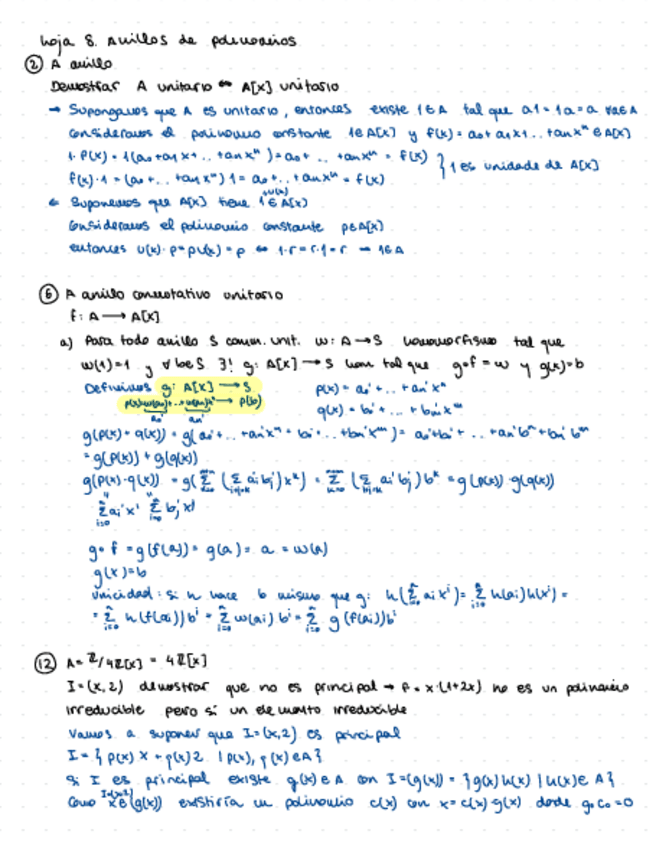 hoja 8. Anillos de polinomios
② A anillo
Demostrar A unitario ⇔ A[x] unitario
→ Supongamos que A es unitario, entonces existe 1∈A tal que a1=1a=a ∀a∈A
Consideramos el polinomio constante 1∈A[x] y f(x)=a₀+a₁x+..+aₙxⁿ∈A[x]
1·f(x)=1(a₀+a₁x+..+aₙxⁿ)=a₀+..+aₙxⁿ=f(x) } 1 es unidade de A[x]
f(x)·1=(a₀+..+aₙxⁿ)1=a₀+..+aₙxⁿ=f(x)
← Suponemos que A[x] tiene 1∈A[x]
Consideramos el polinomio constante p∈A[x]
entonces u(x)·p=pu(x)=p ⇔ 1·r=r·1=r → 1∈A
⑥ A anillo conmutativo unitario
f: A → A[x]
a) Para todo anillo S conm. unit. w: A→S homomorfismo tal que
w(1)=1 y ∀b∈S ∃! g: A[x]→S hom tal que g∘f=w y g(x)=b
Definimos g: A[x] → S p(x)=a₀'+..+aₙ'xⁿ
→ p(b) q(x)=b₀'+...+bₘ'xᵐ
g(p(x)+q(x))=g(a₀'+..+aₙ'xⁿ+b₀'+..+bₘ'xᵐ)=a₀'+b₀'+..+aₙ'bⁿ+bₘ'bᵐ
=g(p(x))+g(q(x))
g(p(x)·q(x))=g(∑(∑ aᵢ'bⱼ')xᵏ)=∑(∑ aᵢ'bⱼ')bᵏ=g(p(x))·g(q(x))
∑aᵢ'xⁱ ∑bⱼ'xʲ
g∘f=g(f(a))=g(a)=a=w(a)
g(x)=b
Unicidad: si h hace lo mismo que g: h(∑aᵢxⁱ)=∑h(aᵢ)h(xⁱ)=
=∑h(f(aᵢ))bⁱ=∑w(aᵢ)bⁱ=∑g(f(aᵢ))bⁱ
⑫ A=ℤ/4ℤ[x]=4ℤ[x]
I=(x,2) demostrar que no es principal → f=x·(1+2x) no es un polinomio
irreducible pero sí un elemento irreducible
Vamos a suponer que I=(x,2) es principal
I={p(x)x+q(x)2 | p(x),q(x)∈A}
Si I es principal existe g(x)∈A con I=(g(x))={g(x)h(x) | h(x)∈A}
Como x∈(g(x)) existiría un polinomio c(x) con x=c(x)g(x) donde g₀c₀=0